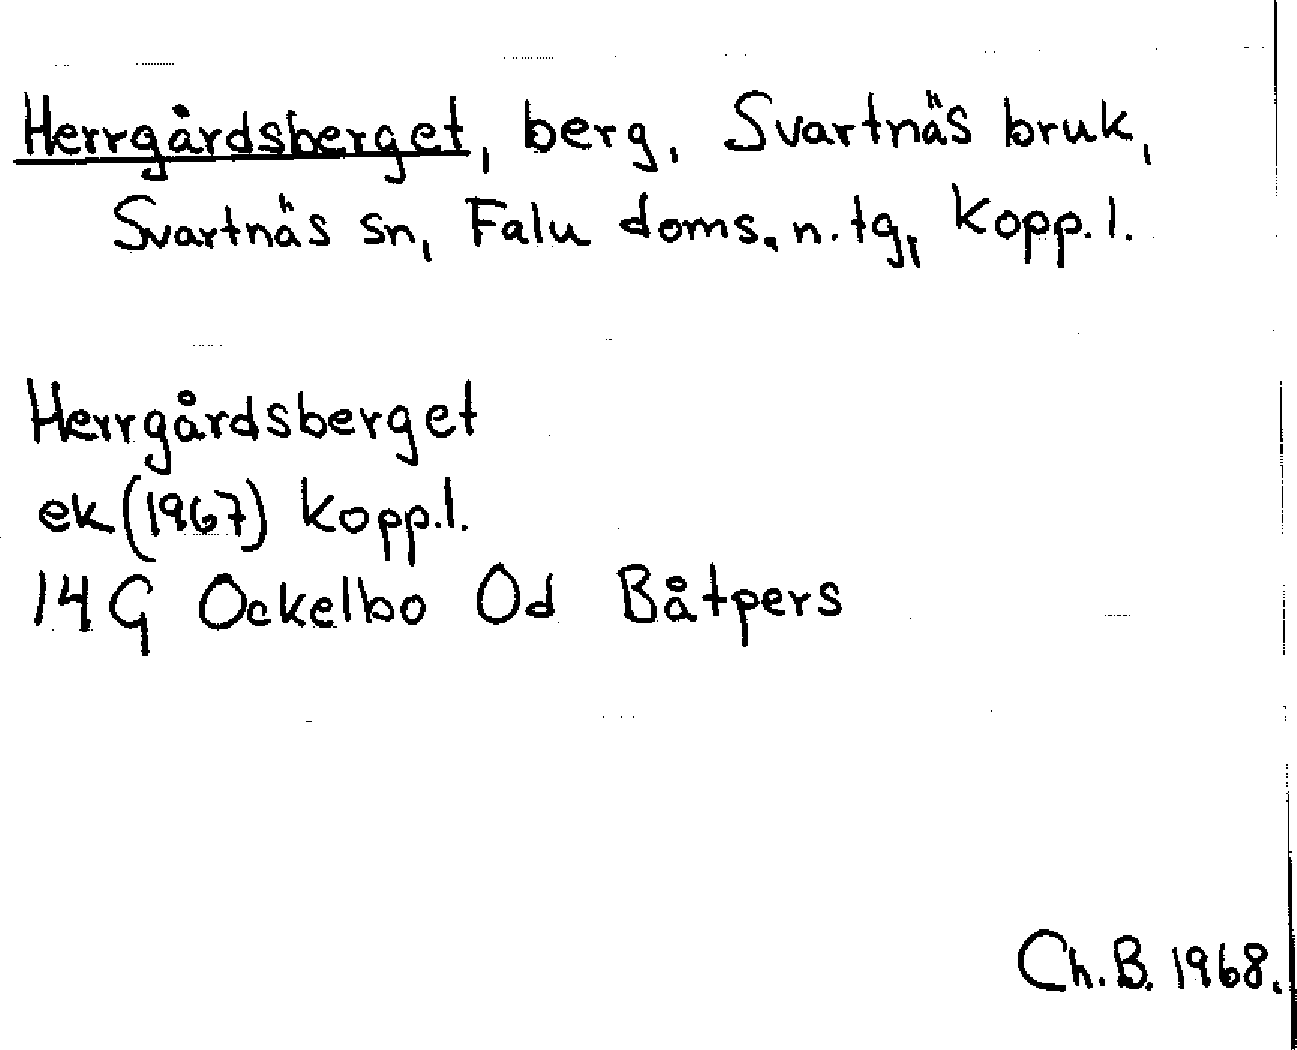 Herrgårdsberget, berg, Svartnäs bruk,
Svartnäs sn, Falu doms. n. tg, Kopp. l.
Herrgårdsberget
ek (1967) Kopp. l.
14 G Ockelbo Od Båtpers
Ch. B. 1968.